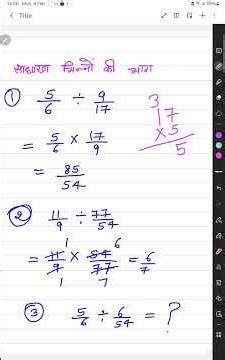 Title
साधारण भिन्नों की भाग
① 5/6 ÷ 9/17
= 5/6 × 17/9
= 85/54
3
17
×5
5
② 11/9 ÷ 77/54
1 6
= 11/9 × 54/77 = 6/7
1 7
③ 5/6 ÷ 6/54 = ?